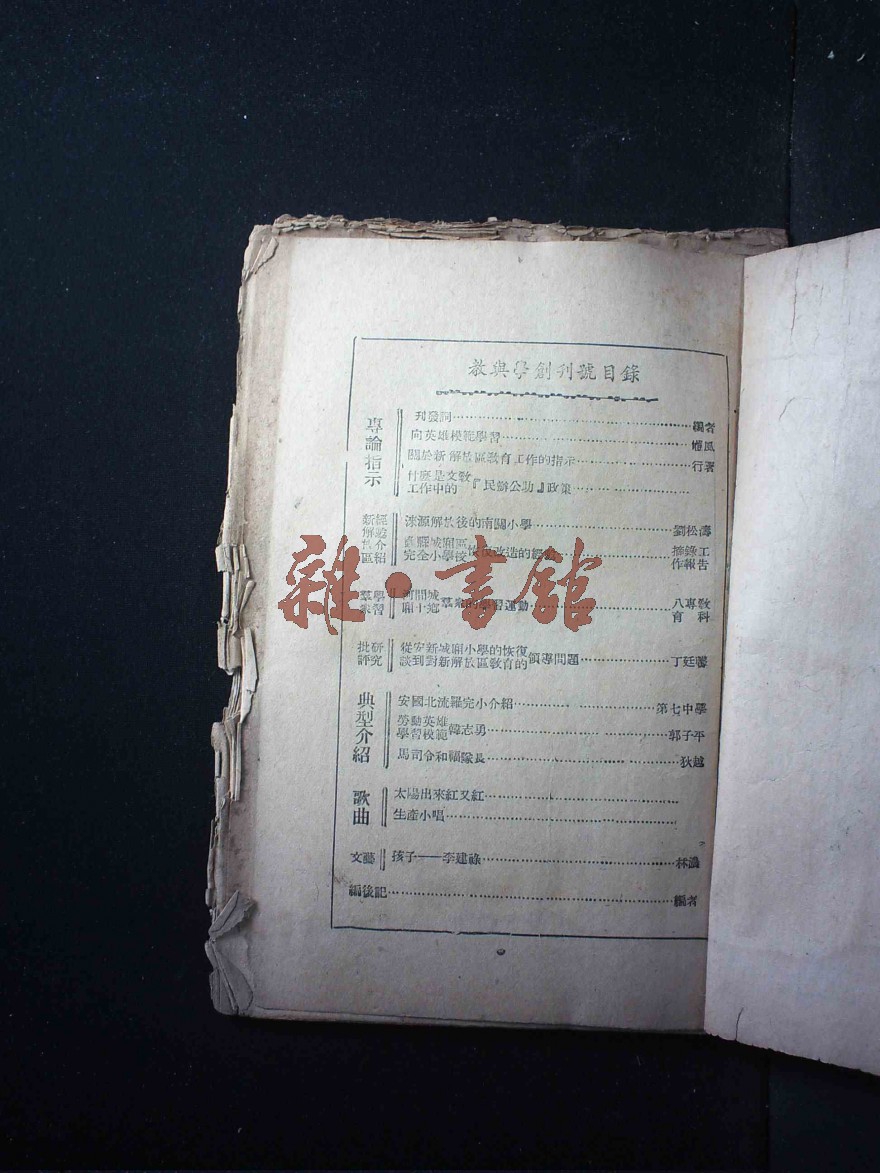 教與學創刊號目錄
專論指示
刊發詞 編者
向英雄模範學習 風
關於新解放區教育工作的指示 行署
什麼是文教工作中的『民辦公助』政策
新解放區 經驗介紹
淶源解放後的南關小學 劉松濤
縣城廂區完全小學校恢復改造的經驗 摘錄工作報告
羣衆學習
河間城廂十鄉羣衆的學習運動 八專教育科
批評研究
從安新城廂小學的恢復談到對新解放區教育的領導問題 丁廷馨
典型介紹
安國北流羅完小介紹 第七中學
勞動英雄學習模範韓志勇 郭子平
馬司令和福隊長 狄越
歌曲
太陽出來紅又紅
生產小唱
文藝
孩子——李建祿 林
編後記 編者
雜·書館